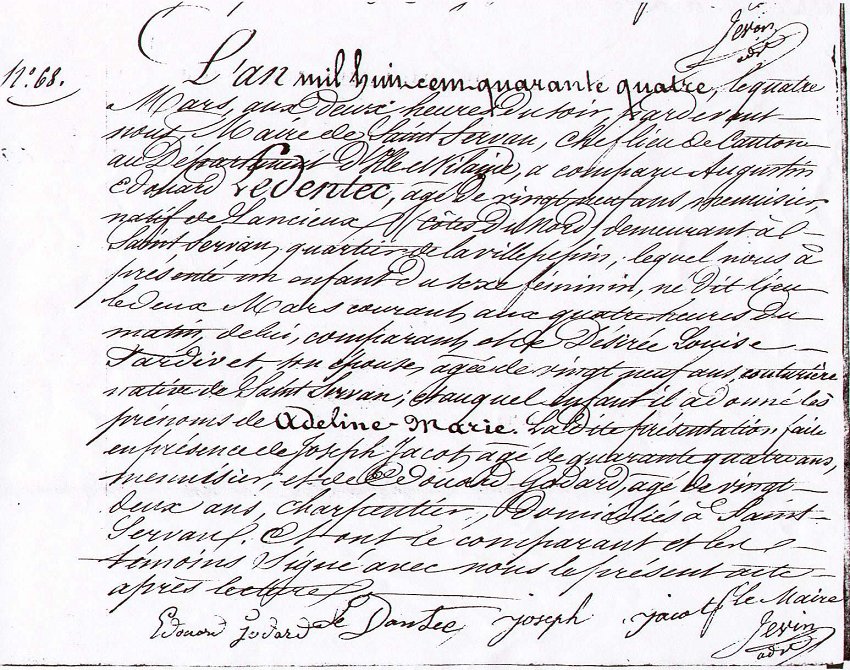 Jevin
adjt
N° 68.
L'an mil huit cent quarante quatre, le quatre
Mars, aux deux heures du soir, pardevant
nous Maire de Saint Servan, chef lieu de Canton
au Département d'Ille et Vilaine, a comparu Augustin
Edouard LeDentec, âgé de vingt neuf ans, menuisier,
natif de Lancieux (côtes du Nord) demeurant à
Saint Servan, quartier de la villepepin; lequel nous à
présenté un enfant du sexe féminin, né dit lieu
le deux Mars courant, aux quatre heures du
matin, de lui, comparant, et de Désirée Louise
Tardivet, son épouse, agée de vingt neuf ans, couturière
native de Saint Servan; et auquel enfant il a donné les
prénoms de Adeline-Marie. La dite présentation faite
en présence de Joseph Jacot, agé de quarante quatre ans,
menuisier, et de Edouard Godard, agé de vingt
deux ans, charpentier, domiciliés à Saint-
Servan. Et ont le comparant et les
témoins signé avec nous le présent acte
après lecture
Edouard Godard Le Dantec joseph jacot le Maire
Jevin
adjt